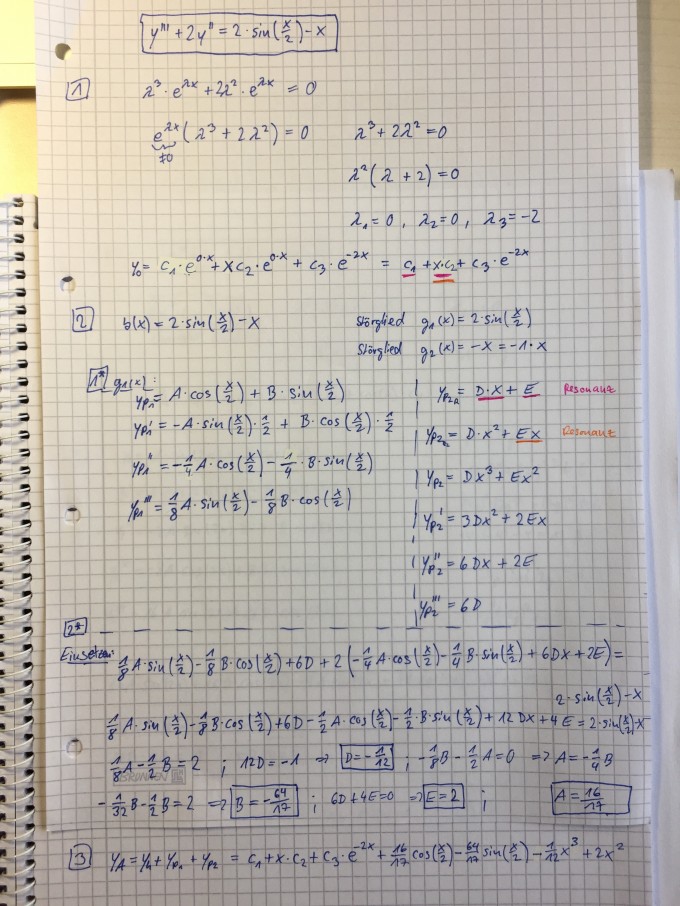 y''' + 2y'' = 2·sin(x/2) - x
1 λ³·e^λx + 2λ²·e^λx = 0
e^λx (λ³ + 2λ²) = 0 λ³ + 2λ² = 0
≠0
λ²(λ + 2) = 0
λ₁ = 0 , λ₂ = 0 , λ₃ = -2
y₀ = c₁·e^0·x + x c₂·e^0·x + c₃·e^-2x = c₁ + x·c₂ + c₃·e^-2x
2 b(x) = 2·sin(x/2) - x Störglied g₁(x) = 2·sin(x/2)
Störglied g₂(x) = -x = -1·x
1* g₁(x):
yp₁ = A·cos(x/2) + B·sin(x/2) yp₂ₐ = D·x + E Resonanz
yp₁' = -A·sin(x/2)·1/2 + B·cos(x/2)·1/2 yp₂ = D·x² + Ex Resonanz
yp₁'' = -1/4 A·cos(x/2) - 1/4·B·sin(x/2) yp₂ = Dx³ + Ex²
yp₁''' = 1/8 A·sin(x/2) - 1/8 B·cos(x/2) yp₂' = 3Dx² + 2Ex
yp₂'' = 6Dx + 2E
yp₂''' = 6D
2*
Einsetzen: 1/8 A·sin(x/2) - 1/8 B·cos(x/2) + 6D + 2(-1/4 A·cos(x/2) - 1/4 B·sin(x/2) + 6Dx + 2E) =
2·sin(x/2) - x
1/8 A·sin(x/2) - 1/8 B·cos(x/2) + 6D - 1/2 A·cos(x/2) - 1/2·B·sin(x/2) + 12Dx + 4E = 2·sin(x/2) - x
1/8 A - 1/2 B = 2 ; 12D = -1 ⇒ D = -1/12 ; -1/8 B - 1/2 A = 0 ⇒ A = -1/4 B
-1/32 B - 1/2 B = 2 ⇒ B = -64/17 ; 6D + 4E = 0 ⇒ E = 2 ; A = 16/17
3 y_A = y₀ + yp₁ + yp₂ = c₁ + x·c₂ + c₃·e^-2x + 16/17 cos(x/2) - 64/17 sin(x/2) - 1/12 x³ + 2x²